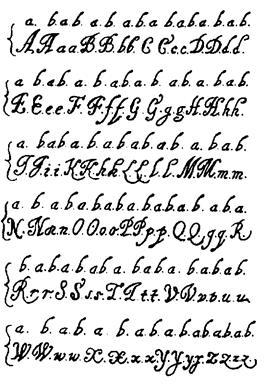 a. b. a. b. a. b. a. b. a. b. a. b. a. b. a. b.
A. A. a. a. B. B. b. b. C. C. c. c. D. D. d. d.
a. b. a. b. a. b. a. b. a. b. a. b. a. b. a. b.
E. E. e. e. F. F. f. f. G. G. g. g. H. H. h. h.
a. b. a. b. a. b. a. b. a. b. a. b. a. b. a. b.
I. I. i. i. K. K. k. k. L. L. l. l. M. M. m. m.
a. b. a. b. a. b. a. b. a. b. a. b. a. b. a. b. a.
N. N. n. n. O. O. o. o. P. P. p. p. Q. Q. q. q. R.
b. a. b. a. b. a. b. a. b. a. b. a. b. a. b.
R. r. r. S. S. s. s. T. T. t. t. V. V. v. v. u. u.
a. b. a. b. a. b. a. b. a. b. a. b. a. b. a. b.
W. W. w. w. X. X. x. x. Y. Y. y. y. Z. Z. z. z.